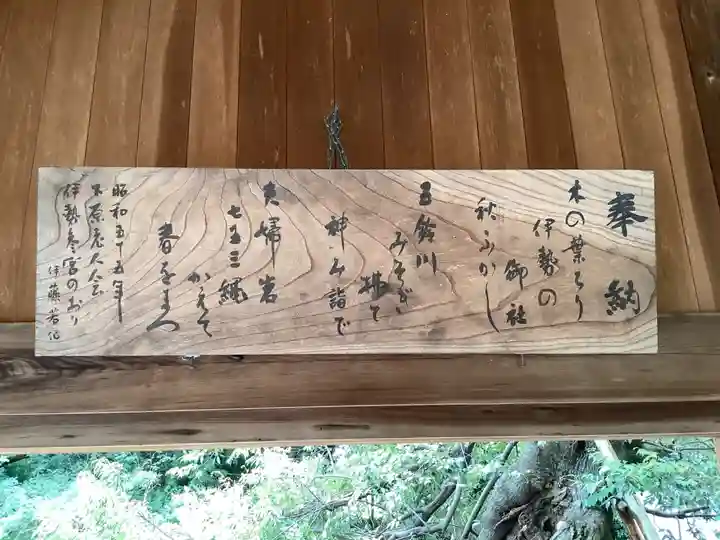 奉納
木の葉ちり
伊勢の
御社
秋ふかし
五鈴川
みそぎ
神み詣で
夫婦岩
七五三縄
かえて
春をまつ
昭和五十五年
木原老人会
伊勢参宮のおり
伊藤